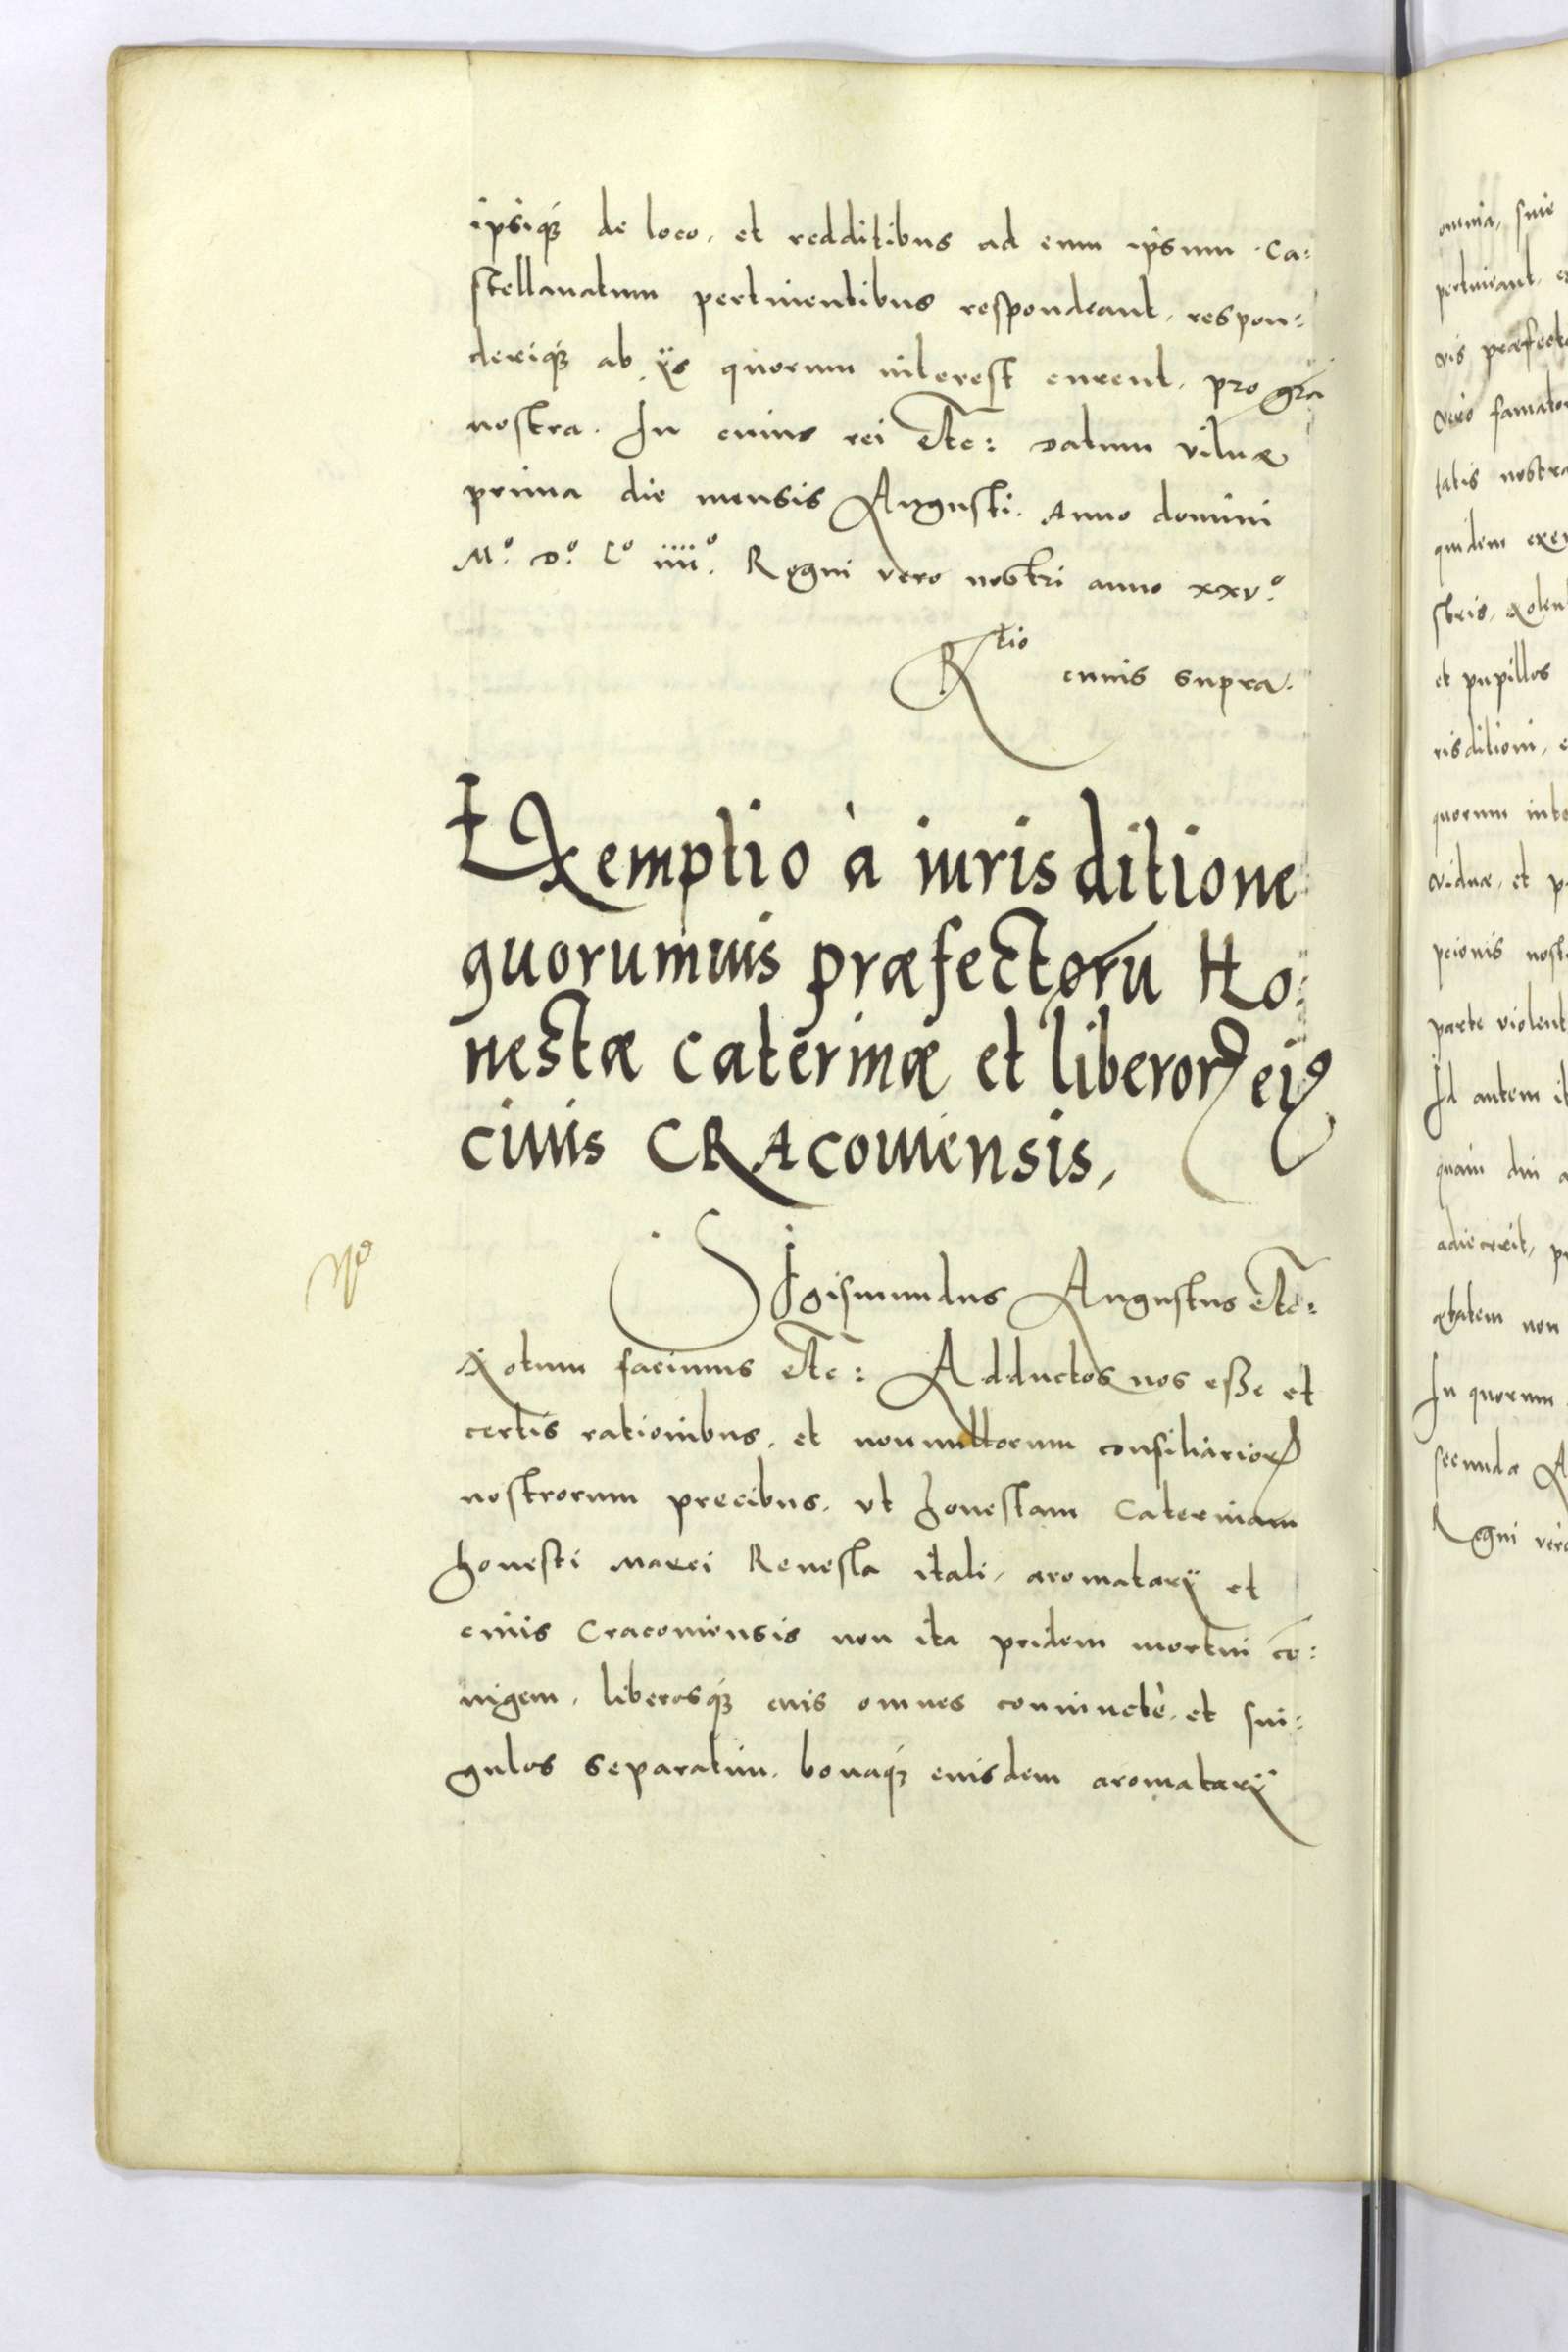 ipsiq́ꝫ de loco, et redditibus ad eum ipsum Ca:
stellanatum pertinentibus respondeant, respon:
deriq́ꝫ ab ijs quorum interest curent, pro gra
nostra. In cuius rei etc: Datum vilnæ
prima die mensis Augusti. Anno domini
Mº. Dº. Lº iiiiº. Regni vero nostri anno xxvº.
Rtio cuius supra.
Exemptio à iurisditione
quorumuis præfectorū Ho:
nestæ Caterinæ et liberorꝝ eiꝰ
ciuis CRACouiensis,
SIgismundus Augustus etc:
Notum facimus etc: Adductos nos eße et
certis rationibus, et nonnullorum consiliariorꝝ
nostrorum precibus, vt honestam Caterinam
honesti Marci Reuesla itali, aromatarij et
ciuis Cracouiensis non ita pridem mortui co:
niugem, liberosq́ꝫ eius omnes coniunctè, et sin:
gulos separatim, bonaq́ꝫ eiusdem aromatarij
omnia, siue
pertineant, e
uis præfecto
vero famato
tatis nostra
quidem exe
stris, Nolen
et pupillos
risditioni, e
quorum inte
viduæ, et p
pcionis nost
parte violent
Id autem it
quam diu a
adiecerit, p
ætatem non
In quorum
secunda A
Regni vero